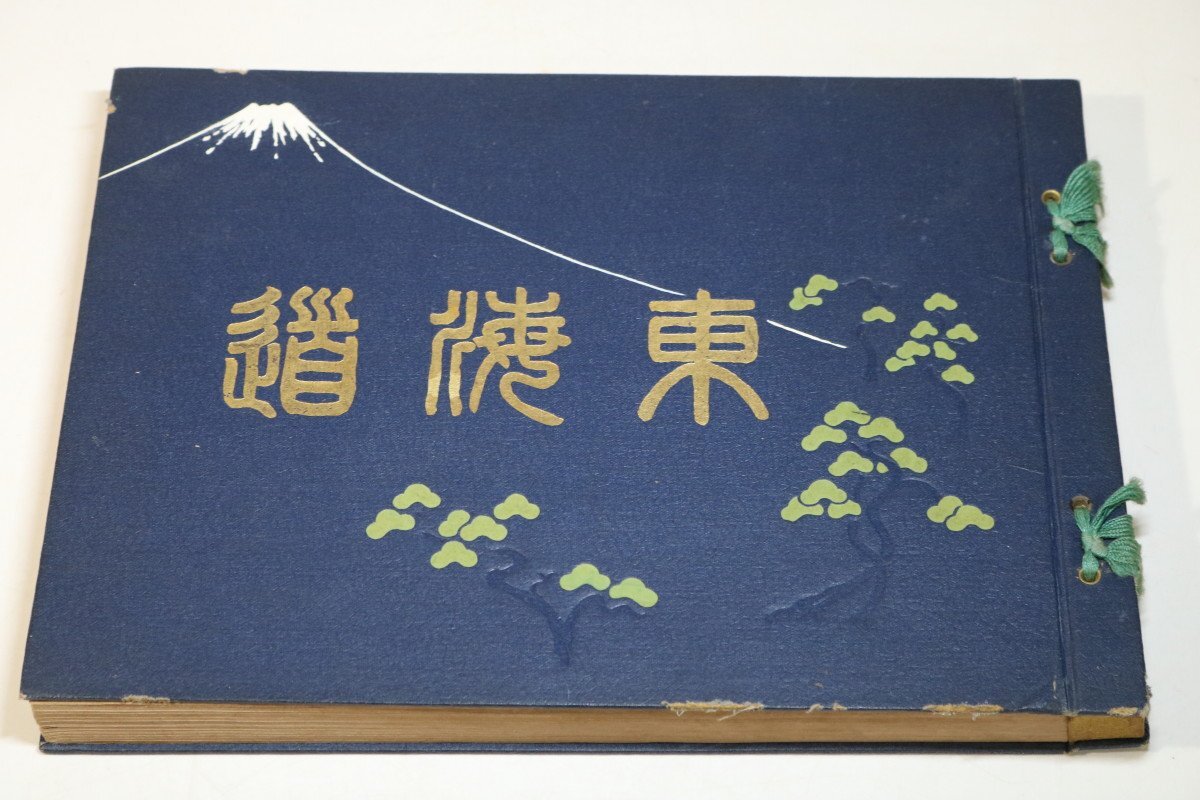 東海道